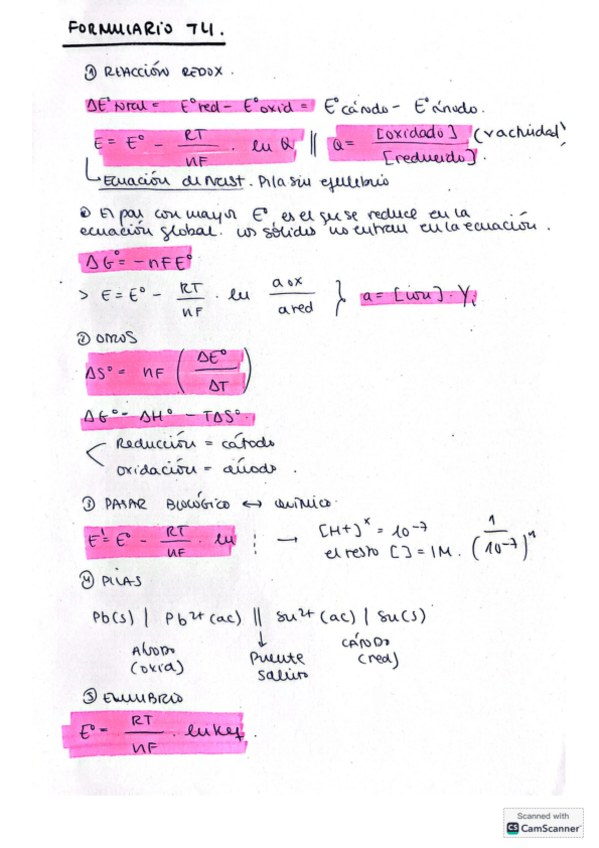 FORMULARIO T4.
① REACCIÓN REDOX.
ΔE°total = E°red - E°oxid = E°cátodo - E°ánodo.
E = E° - RT/nF · ln Q || Q = [oxidado]/[reducido]. (reactividad)
Ecuación de Nerst. Pila sin equilibrio
② El par con mayor E° es el que se reduce en la
ecuación global. Los sólidos no entran en la ecuación.
ΔG° = -nFE°
> E = E° - RT/nF · ln a ox/a red } a = [ion] · γi
② OTROS
ΔS° = nF (ΔE°/ΔT)
ΔG° = ΔH° - TΔS°.
Reducción = cátodo
oxidación = ánodo.
③ PASAR BIOLÓGICO ↔ QUÍMICO.
E' = E° - RT/nF · ln ⋮ → [H+]ˣ = 10⁻⁷
el resto [ ] = 1M. (1/10⁻⁷)ⁿ
④ PILAS
Pb(s) | Pb²⁺(ac) || Su²⁺(ac) | Su(s)
ÁNODO
(oxid)
Puente
salino
CÁTODO
(red)
⑤ EQUILIBRIO
E° = RT/nF · ln Keq.
Scanned with
CS CamScanner